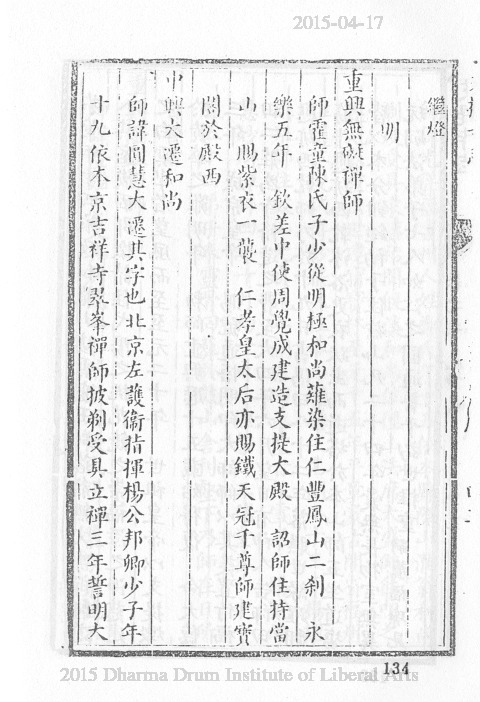 2015-04-17
繼燈
明
重興無礙禪師
師霍童陳氏子少從明極和尚薙染住仁豐鳳山二刹 永
樂五年 欽差中使周覺成建造支提大殿 詔師住持當
山 賜紫衣一襲 仁孝皇太后亦賜鐵天冠千尊師建寶
閣於殿西
中興大遷和尚
師諱圓慧大遷其字也北京左護衛指揮楊公邦卿少子年
十九依本京吉祥寺翠峯禪師披剃受具立禪三年誓明大
134
2015 Dharma Drum Institute of Liberal Arts